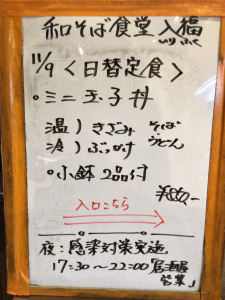 和そば食堂 入福
11/9 〈日替定食〉
○ミニ玉子丼
温）きざみ そば
冷）ぶっかけ うどん
○小鉢 2品付
入口こちら
夜：感染対策実施
17:30〜22:00 居酒屋
営業」